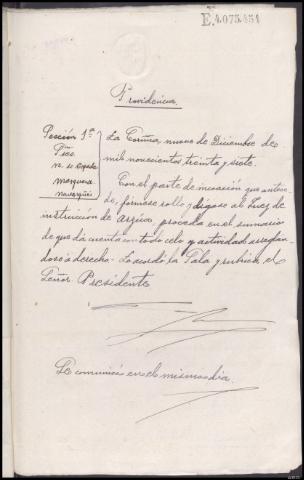 E.4.075.451
Providencia
Sección 1ª
Pte
V. de Espada
Marquina
La Coruña, nueve de Diciembre de
mil novecientos treinta y siete.
Con el parte de incoación que antece-
de, fórmese rollo y dígase al Juez de
instrucción de Arzúa, proceda en el sumario
de que dá cuenta con todo celo y actividad arreglan-
dose a derecho. Lo acordó la Sala y rubrica el
Señor Presidente
Se comunicó en el mismo dia.